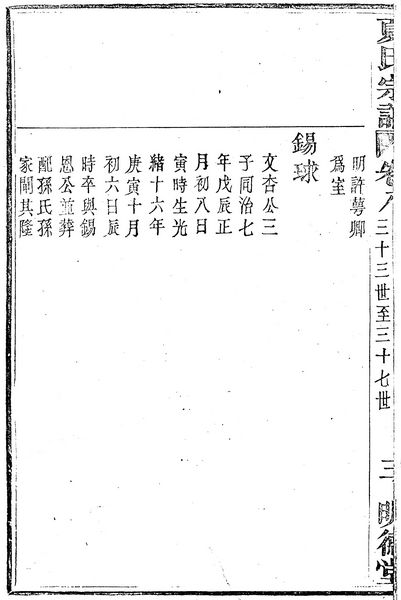 夏氏宗譜
卷八
三十三世至三十七世
三
明德堂
明許蕚卿
爲室
錫球
文杏公三
子同治七
年戊辰正
月初八日
寅時生光
緒十六年
庚寅十月
初六日辰
時卒與錫
恩公並葬
配孫氏孫
家閘其隆